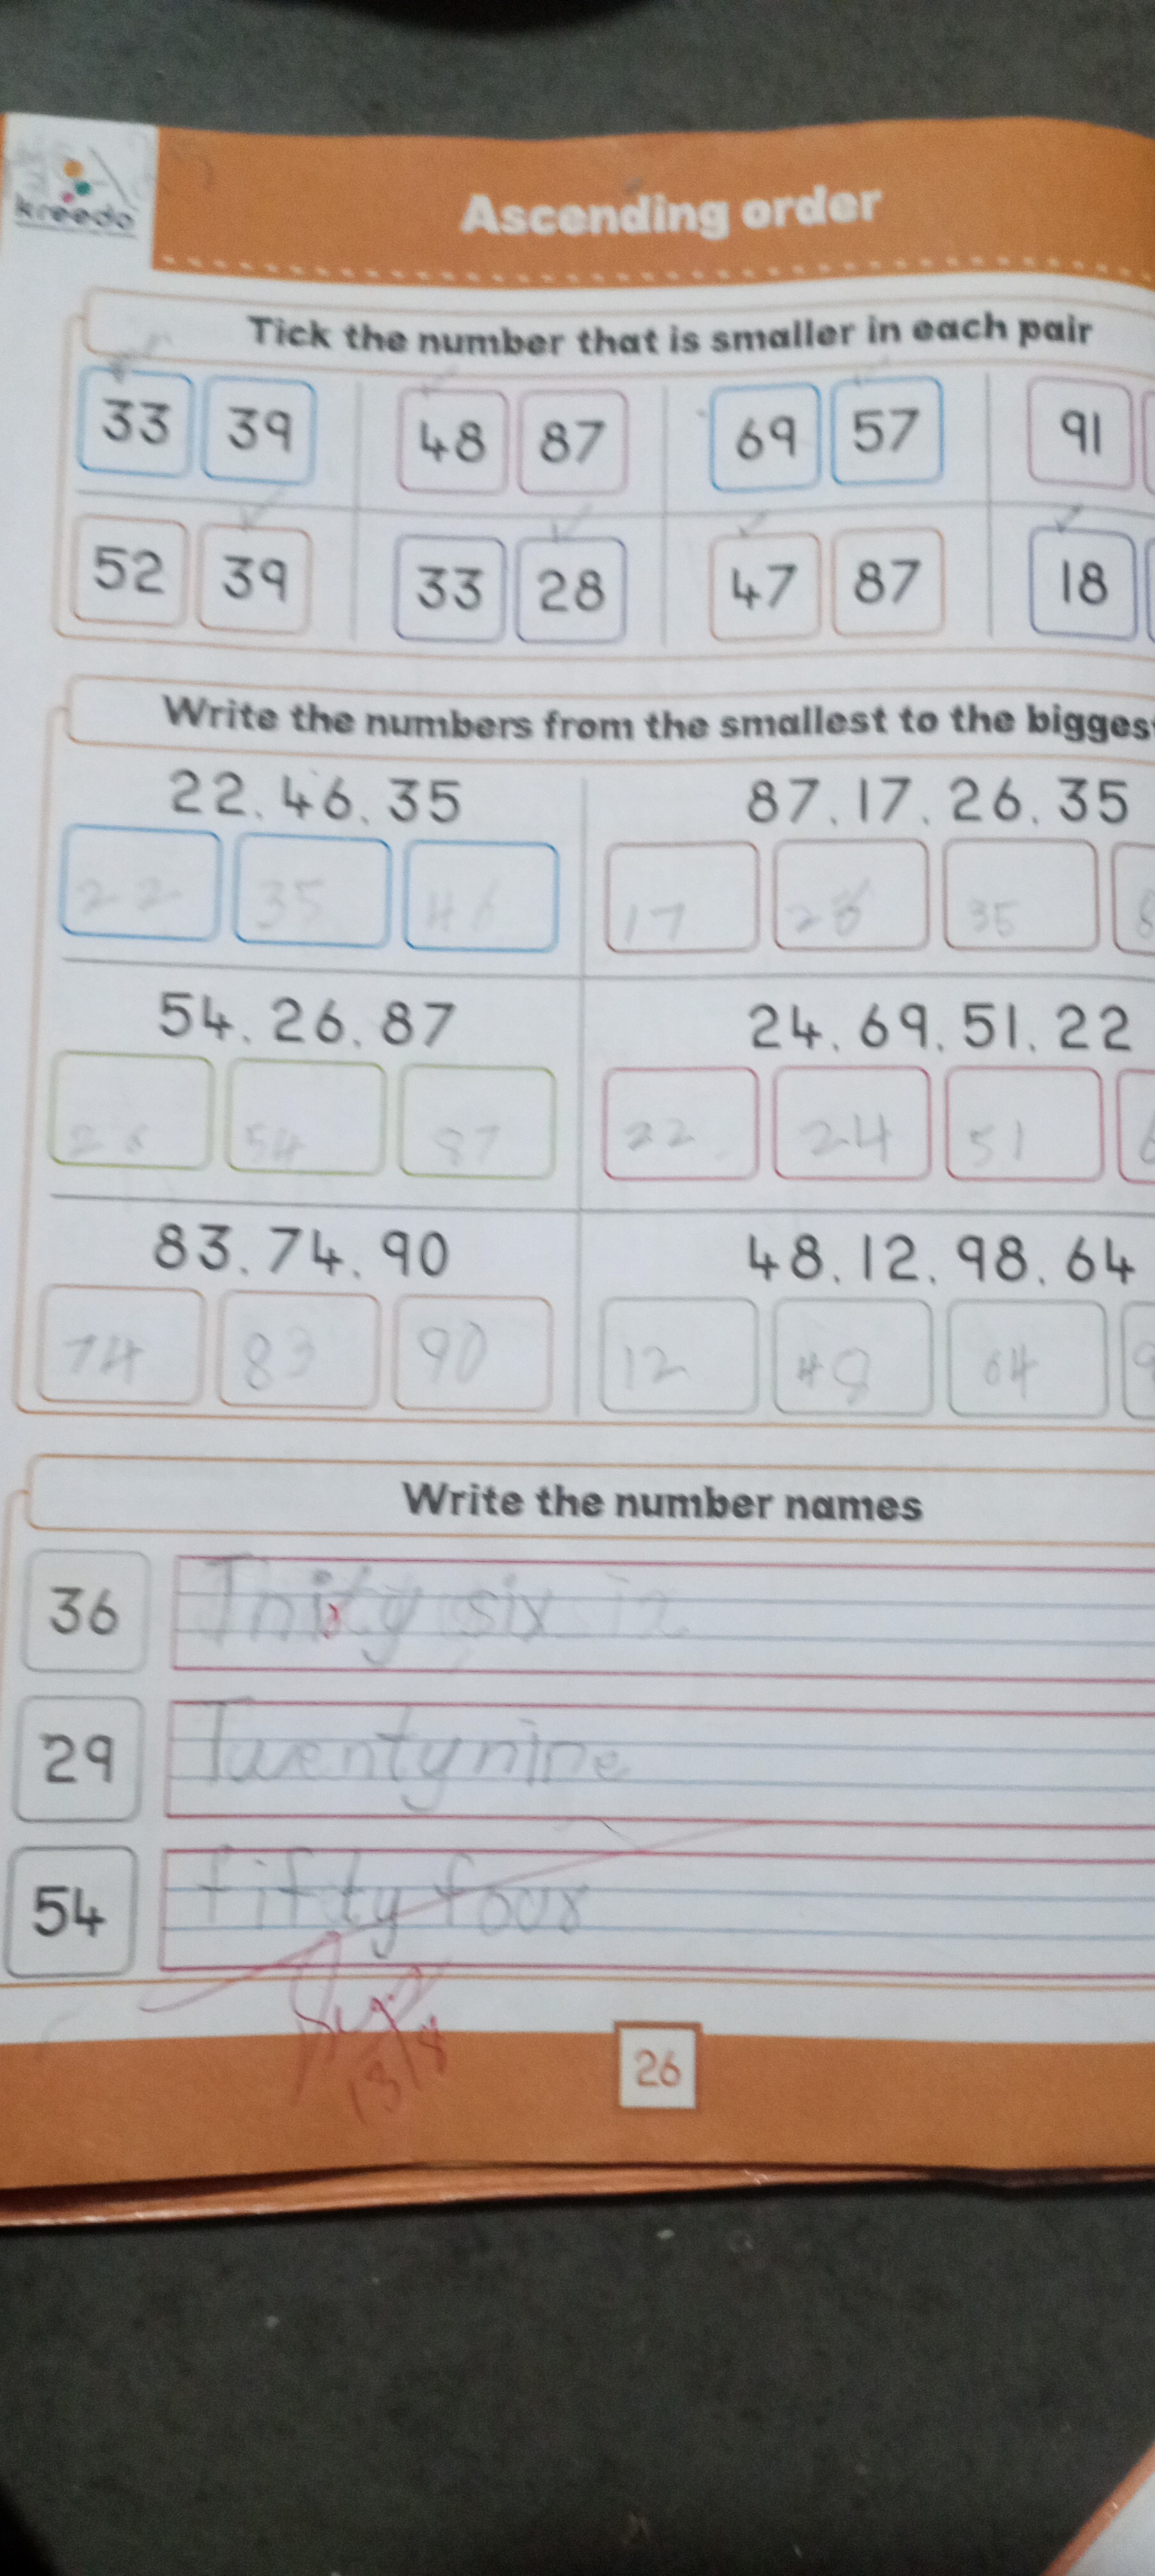 kreedo
Ascending order
Tick the number that is smaller in each pair
33 39 48 87 69 57 91
52 39 33 28 47 87 18
Write the numbers from the smallest to the bigges
22, 46, 35 87, 17, 26, 35
22 35 46 17 26 35
54, 26, 87 24, 69, 51, 22
26 54 87 22 24 51
83, 74, 90 48, 12, 98, 64
74 83 90 12 48 64
Write the number names
36 six
29 Twenty nine
54 four
26